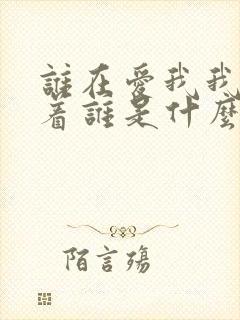 誰在愛我我
着誰是什麼
陌言殤